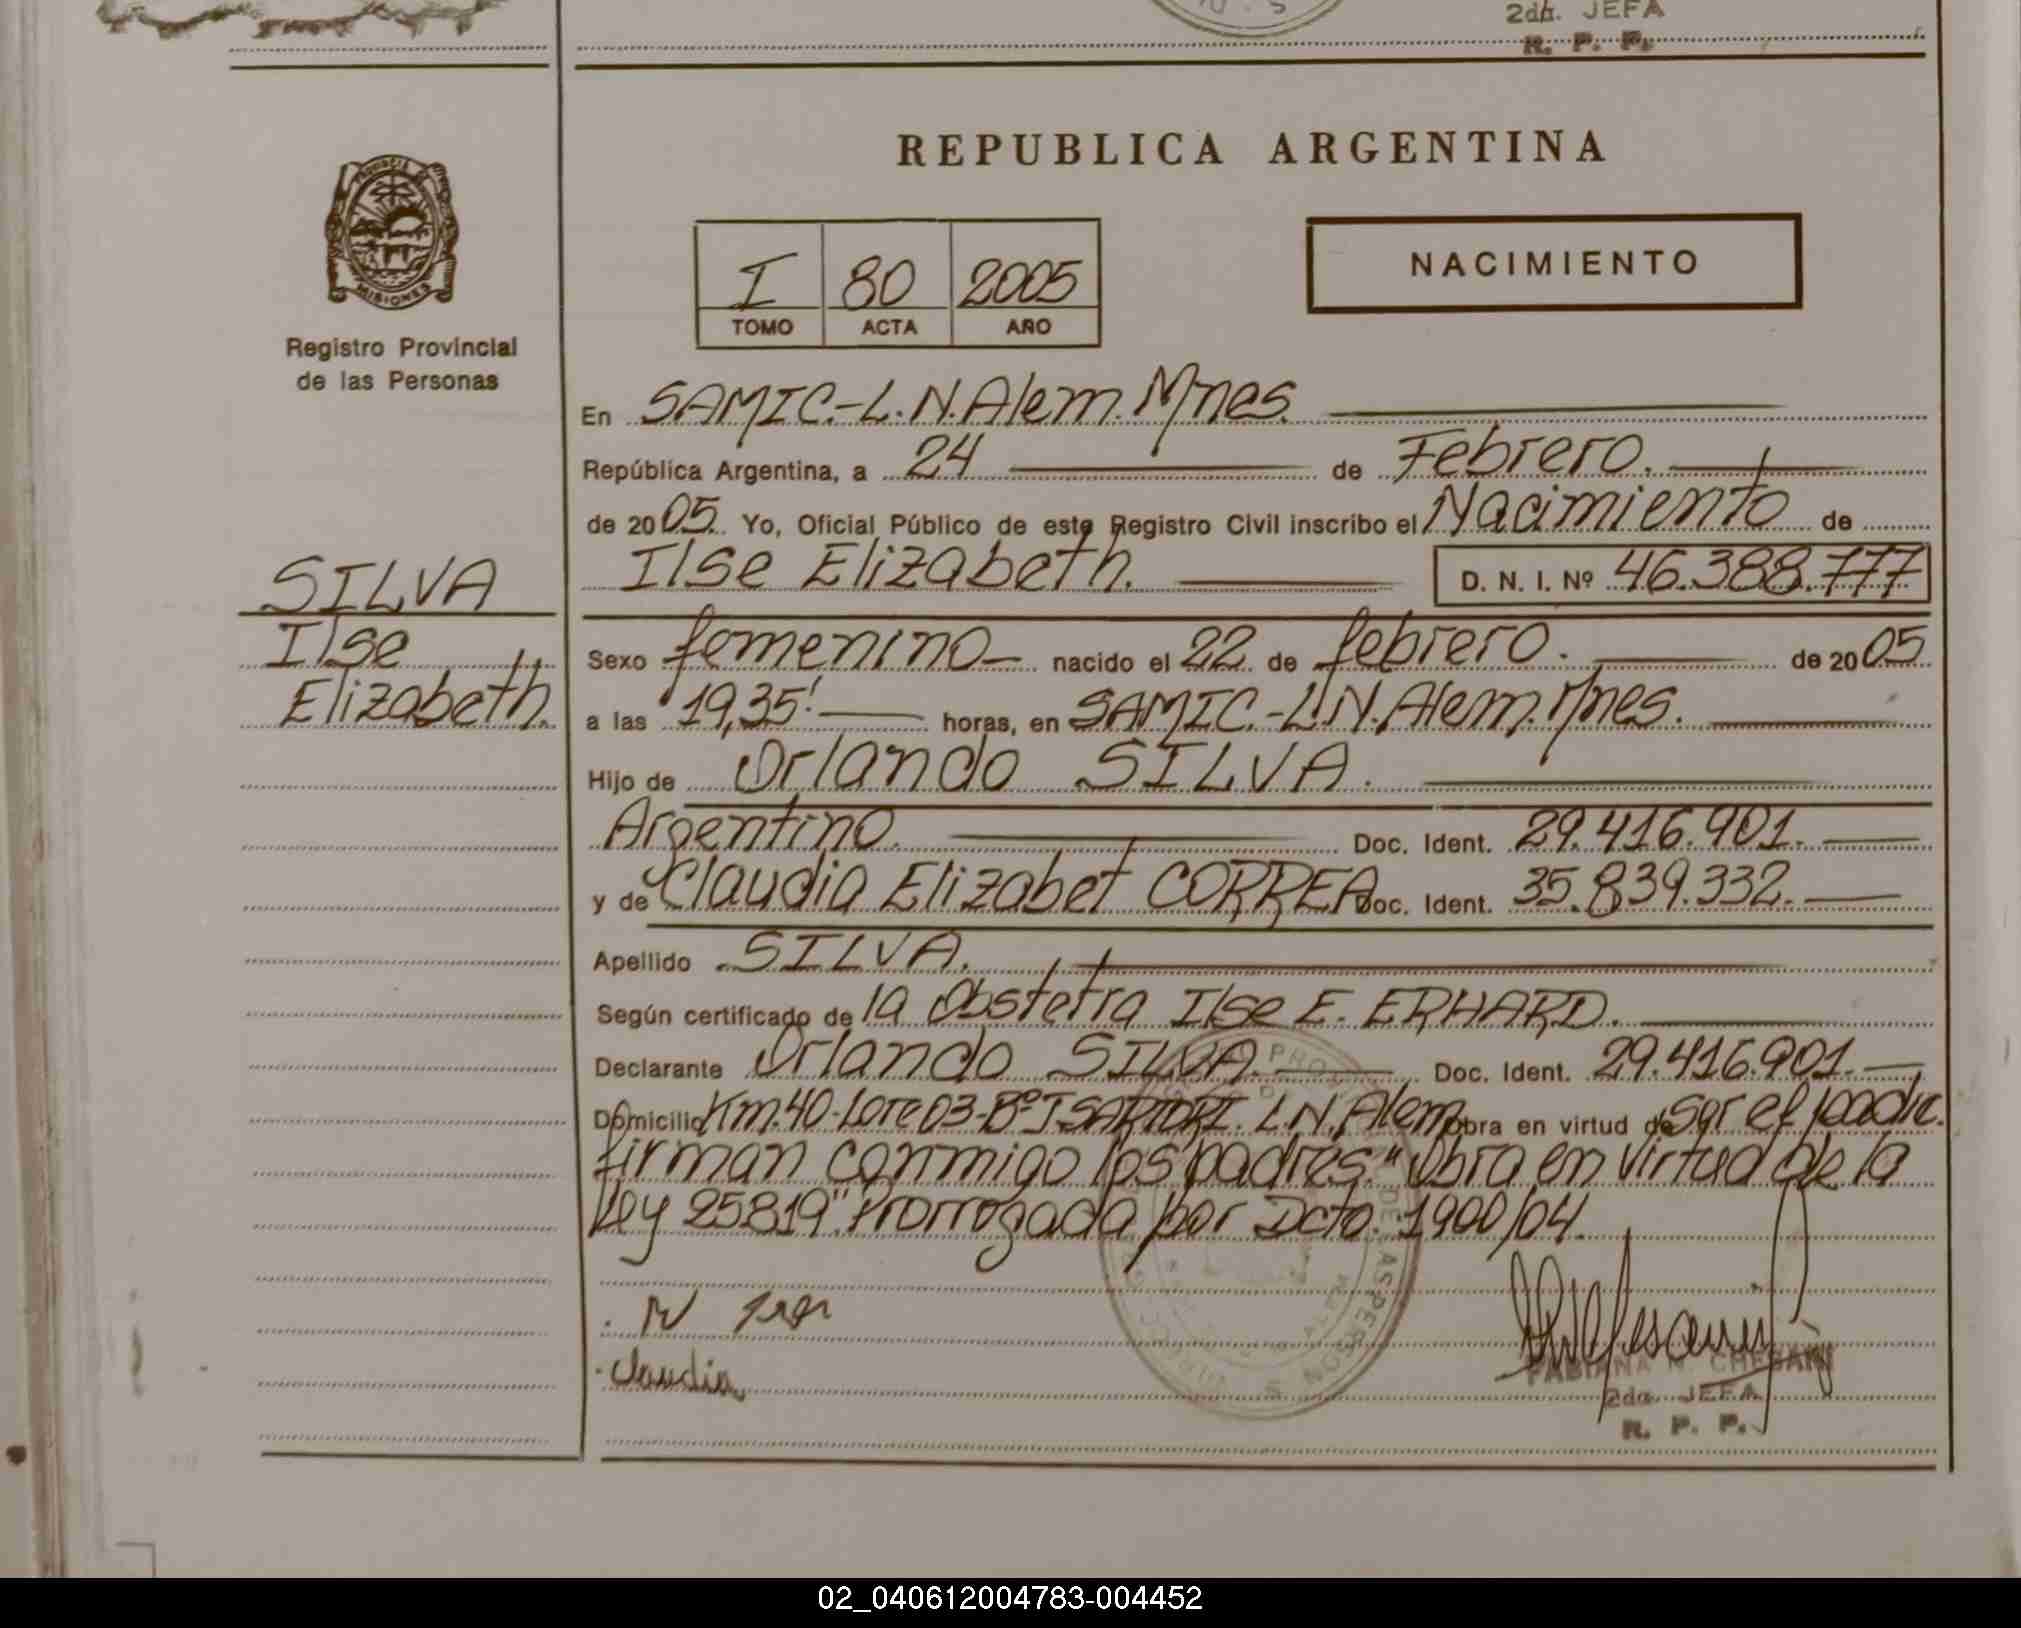 2da. JEFA
R. P. P.
REPUBLICA ARGENTINA
MISIONES
Registro Provincial
de las Personas
I 80 2005
TOMO ACTA AÑO
NACIMIENTO
En SAMIC.-L.N.Alem.Mnes.
República Argentina, a 24 de Febrero.
de 2005. Yo, Oficial Público de este Registro Civil inscribo el Nacimiento de
Ilse Elizabeth. D. N. I. Nº 46.388.777
SILVA
Ilse
Elizabeth.
Sexo femenino nacido el 22 de febrero. de 2005
a las 19,35' horas, en SAMIC.-L.N.Alem.Mnes.
Hijo de Orlando SILVA.
Argentino. Doc. Ident. 29.416.901.
y de Claudia Elizabet CORREA Doc. Ident. 35.839.332.
Apellido SILVA.
Según certificado de la Obstetra Ilse E. ERHARD.
Declarante Orlando SILVA. Doc. Ident. 29.416.901.
Domicilio Km.40-Lote 03-Bº J.SARTORI. L.N.Alem Obra en virtud de ser el padre.
firman conmigo los padres." Obra en virtud de la
Ley 25819" Prorrogada por Dcto. 1900/04.
Claudia
FABIANA N.
2da. JEFA
R. P. P.
02_040612004783-004452